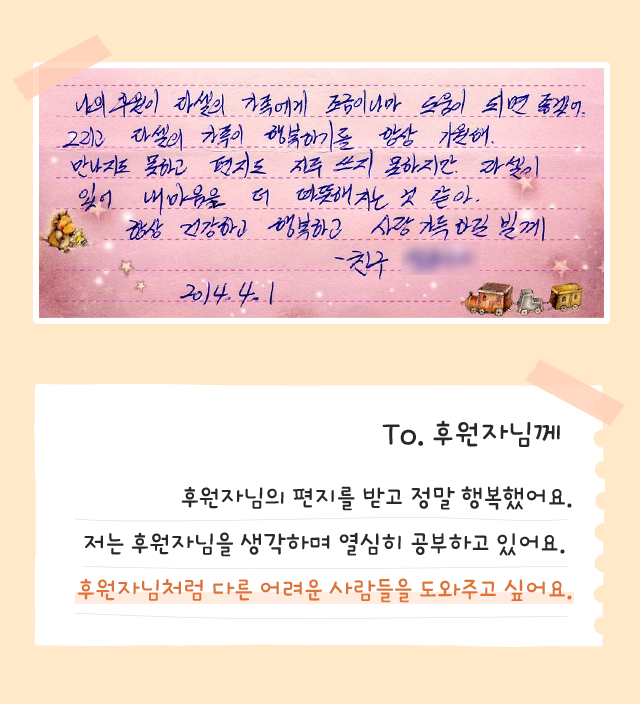 나의 후원이 다셀의 가족에게 조금이나마 도움이 되면 좋겠어.
그리고 다셀의 가족이 행복하기를 항상 기원해.
만나지도 못하고 편지도 자주 쓰지 못하지만. 다셀이
있어 내 마음을 더 따뜻해지는 것 같아.
항상 건강하고 행복하고 사랑 가득하길 빌게
-친구
2014. 4. 1
To. 후원자님께
후원자님의 편지를 받고 정말 행복했어요.
저는 후원자님을 생각하며 열심히 공부하고 있어요.
후원자님처럼 다른 어려운 사람들을 도와주고 싶어요.